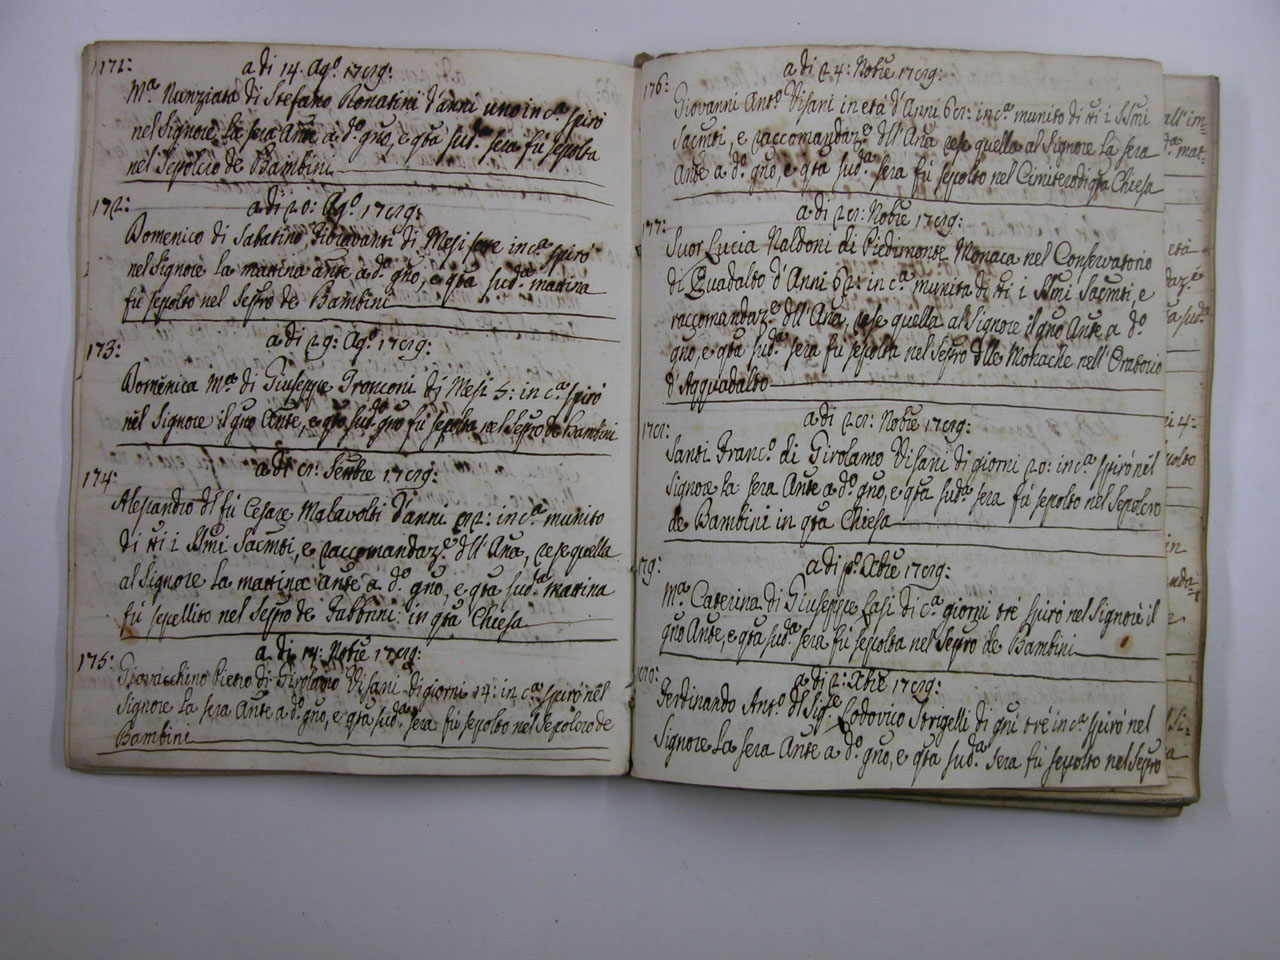 171:
a di 14. Ag.º 1789:
M.ª Nunziata di Stefano Donatini d'anni uno in c.ª spirò
nel Signore la sera Ante a d.º gno, e qta sud.ª sera fù sepolta
nel Sepolcro de Bambini
172:
a di 20: Ag.º 1789:
Domenico di Sabatino di Mesi sette in c.ª spirò
nel Signore la mattina ante a d.º gno, e qta sud.ª mattina
fù sepolto nel Sepro de Bambini
173:
a di 29: Ag.º 1789:
Domenica M.ª di Giuseppe Tronconi di Mesi 5: in c.ª spirò
nel Signore il gno Ante, e qto sud.º gno fù sepolta nel Sepro de Bambini
174:
a di 8: Settbre 1789:
Alessandro dl fù Cesare Malavolti d'anni 82: in c.ª munito
di tti i SSmi Sacmti, e raccomandaz.e dll'Ana, rese quella
al Signore la mattina ante a d.º gno, e qta sud.ª mattina
fù sepellito nel Sepro de Fabbrini in qta Chiesa
175:
a di 17: Nobre 1789:
Giovacchino Pietro di Girolamo Visani di giorni 14: in c.ª spirò nel
Signore la sera Ante a d.º gno, e qta sud.ª sera fù sepolto nel Sepolcro de
Bambini
176:
a di 24: Nobre 1789:
Giovanni Ant.º Visani in età d'Anni 68: in c.ª munito di tti i SSmi
Sacmti, e raccomandaz.e dll'Ana rese quella al Signore la sera
Ante a d.º gno, e qta sud.ª sera fù sepolto nel Cimitero di qta Chiesa
177:
a di 28: Nobre 1789:
Suor Lucia Naldoni di Piedimonte Monaca nel Conservatorio
di Quadalto d'Anni 62: in c.ª munita di tti i SSmi Sacmti, e
raccomandaz.e dll'Ana, rese quella al Signore il gno Ante a d.º
gno, e qta sud.ª sera fù sepolta nel Sepro dlle Monache nell'Oratorio
d'Aqquadalto
178:
a di 28: Nobre 1789:
Santi Franc.º di Girolamo Visani di giorni 20: in c.ª spirò nel
Signore la sera Ante a d.º gno, e qta sud.ª sera fù sepolto nel Sepolcro
de Bambini in qta Chiesa
179:
a di p.º Xbre 1789:
M.ª Caterina di Giuseppe Lasi di c.ª giorni tre spirò nel Signore il
gno Ante, e qta sud.ª sera fù sepolta nel Sepro de Bambini
180:
a di 2: Xbre 1789:
Ferdinando Ant.º dl Sig.re Lodovico Strigelli di gni tre in c.ª spirò nel
Signore la sera Ante a d.º gno, e qta sud.ª sera fù sepolto nel Sepro